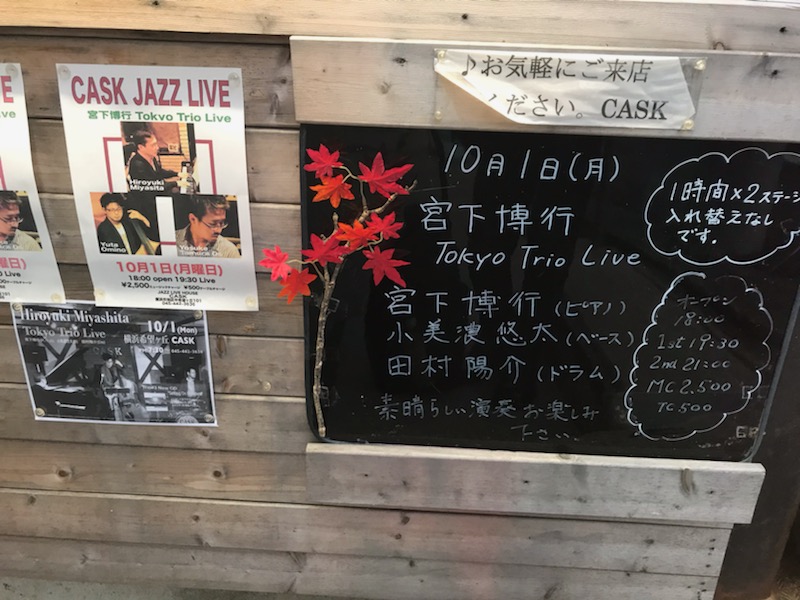 CASK JAZZ LIVE
宮下博行 Tokyo Trio Live
Hiroyuki
Miyasita
Yuta
Omino
Yosuke
10月1日(月曜日)
18:00 open 19:30 Live
¥2,500
¥500
JAZZ LIVE HOUSE
CASK
045-443-3636
Hiroyuki Miyashita
Tokyo Trio Live
10/1 (Mon)
横浜希望ヶ丘 CASK
♪お気軽にご来店
ください。CASK
10月1日(月)
宮下博行
Tokyo Trio Live
宮下博行(ピアノ)
小美濃悠太(ベース)
田村陽介(ドラム)
素晴らしい演奏お楽しみ
下さい
1時間×2ステージ
入れ替えなし
です。
オープン
18:00
1st 19:30
2nd 21:00
MC 2,500
TC 500